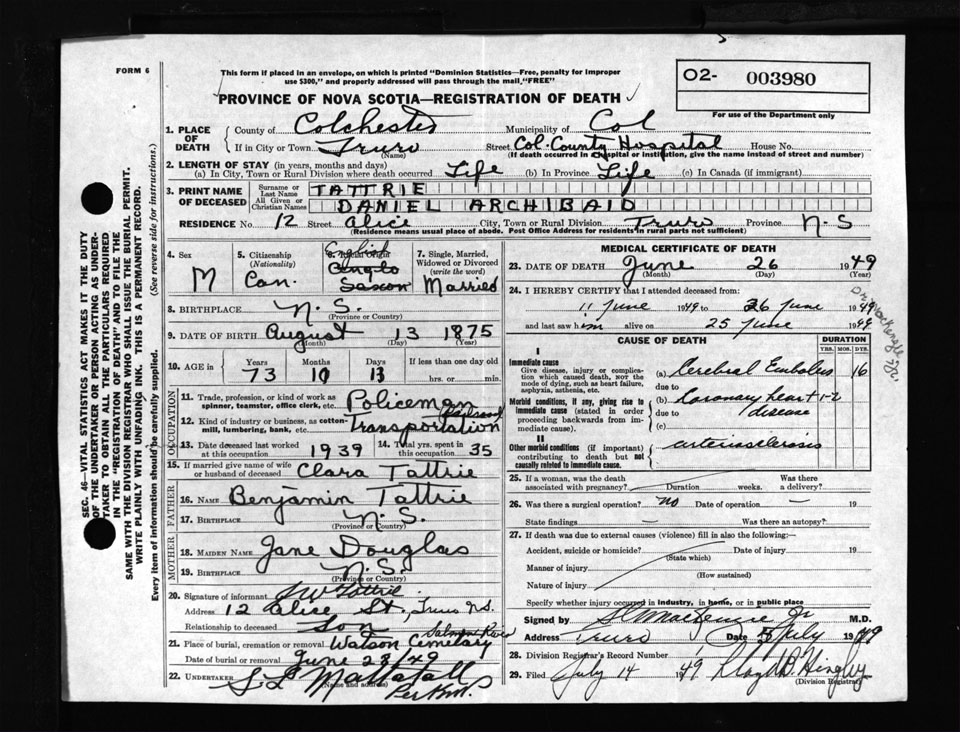 FORM 6
This form if placed in an envelope, on which is printed "Dominion Statistics—Free, penalty for improper
use $300," and properly addressed will pass through the mail "FREE"
PROVINCE OF NOVA SCOTIA—REGISTRATION OF DEATH
O2- 003980
For use of the Department only
1. PLACE OF DEATH
County of Colchester Municipality of Col
If in City or Town Truro Street Col. County Hospital House No.
(Name) (If death occurred in a hospital or institution, give the name instead of street and number)
2. LENGTH OF STAY (in years, months and days)
(a) In City, Town or Rural Division where death occurred Life (b) In Province Life (c) In Canada (if immigrant)
3. PRINT NAME OF DECEASED
Surname or Last Name TATTRIE
All Given or Christian Names DANIEL ARCHIBALD
RESIDENCE No. 12 Street Alice City, Town or Rural Division Truro Province N-S
(Residence means usual place of abode. Post Office Address for residents in rural parts not sufficient)
4. Sex M
5. Citizenship (Nationality) Can.
6. English Anglo Saxon
7. Single, Married, Widowed or Divorced (write the word) Married
8. BIRTHPLACE N.S.
(Province or Country)
9. DATE OF BIRTH August 13 1875
(Month) (Day) (Year)
10. AGE Years 73 Months 10 Days 13 If less than one day old hrs. or min.
OCCUPATION
11. Trade, profession, or kind of work as spinner, teamster, office clerk, etc. Policeman
12. Kind of industry or business, as cotton-mill, lumbering, bank, etc. Railroad Transportation
13. Date deceased last worked at this occupation 1939
14. Total yrs. spent in this occupation 35
15. If married give name of wife or husband of deceased Clara Tattrie
FATHER
16. NAME Benjamin Tattrie
17. BIRTHPLACE N.S.
(Province or Country)
MOTHER
18. MAIDEN NAME Jane Douglas
19. BIRTHPLACE N.S.
(Province or Country)
20. Signature of informant Tattrie
Address 12 Alice St., Truro N.S.
Relationship to deceased Son
21. Place of burial, cremation or removal Watson Cemetary Salmon River
Date of burial or removal June 28 '49
22. UNDERTAKER S L Mattatall
(Name and address)
MEDICAL CERTIFICATE OF DEATH
23. DATE OF DEATH June 26 1949
(Month) (Day) (Year)
24. I HEREBY CERTIFY that I attended deceased from:
11 June 1949 to 26 June 1949
and last saw him alive on 25 June 1949
CAUSE OF DEATH DURATION
YRS. MOS. DYS.
I
Immediate cause
Give disease, injury or complication which caused death, not the mode of dying, such as heart failure, asphyxia, asthenia, etc.
(a) Cerebral Embolus 16
due to
Morbid conditions, if any, giving rise to immediate cause (stated in order proceeding backwards from immediate cause).
(b) Coronary heart disease 1-2
due to
(c)
II
Other morbid conditions (if important) contributing to death but not causally related to immediate cause.
arteriosclerosis
25. If a woman, was the death associated with pregnancy? Duration weeks. Was there a delivery?
26. Was there a surgical operation? no Date of operation — 19
State findings — Was there an autopsy?
27. If death was due to external causes (violence) fill in also the following:—
Accident, suicide or homicide? Date of injury 19
(State which)
Manner of injury
(How sustained)
Nature of injury
Specify whether injury occurred in industry, in home, or in public place
Signed by MacKenzie Jr M.D.
Address Truro Date July 1949
28. Division Registrar's Record Number
29. Filed July 14 1949 Lloyd B. Hingley
(Division Registrar)
SEC. 46—VITAL STATISTICS ACT MAKES IT THE DUTY
OF THE UNDERTAKER OR PERSON ACTING AS UNDERTAKER
TO OBTAIN ALL THE PARTICULARS REQUIRED
IN THE "REGISTRATION OF DEATH" AND TO FILE THE
SAME WITH THE DIVISION REGISTRAR WHO SHALL ISSUE THE BURIAL PERMIT.
WRITE PLAINLY WITH UNFADING INK. THIS IS A PERMANENT RECORD.
Every item of information should be carefully supplied. (See reverse side for instructions.)